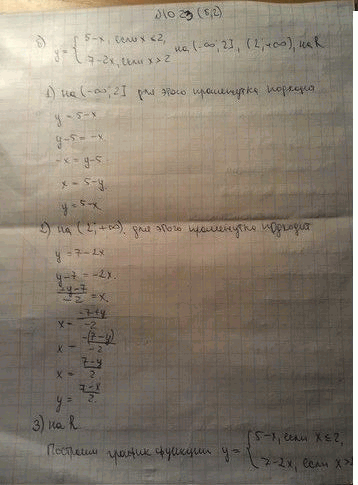 №10.23 (б,г)
б) y = { 5-x, если x ≤ 2,
7-2x, если x > 2
на (-∞; 2], (2; +∞), на R
1) на (-∞; 2] для этого промежутка подходит
y = 5-x
y-5 = -x
-x = y-5
x = 5-y.
y = 5-x
2) на (2; +∞). для этого промежутка подходит
y = 7-2x
y-7 = -2x.
-y-7/-2 = x.
x = -7+y/-2
x = -(7-y)/-2
x = 7-y/2.
y = 7-x/2.
3) на R
Построим график функции y = { 5-x, если x ≤ 2,
7-2x, если x >